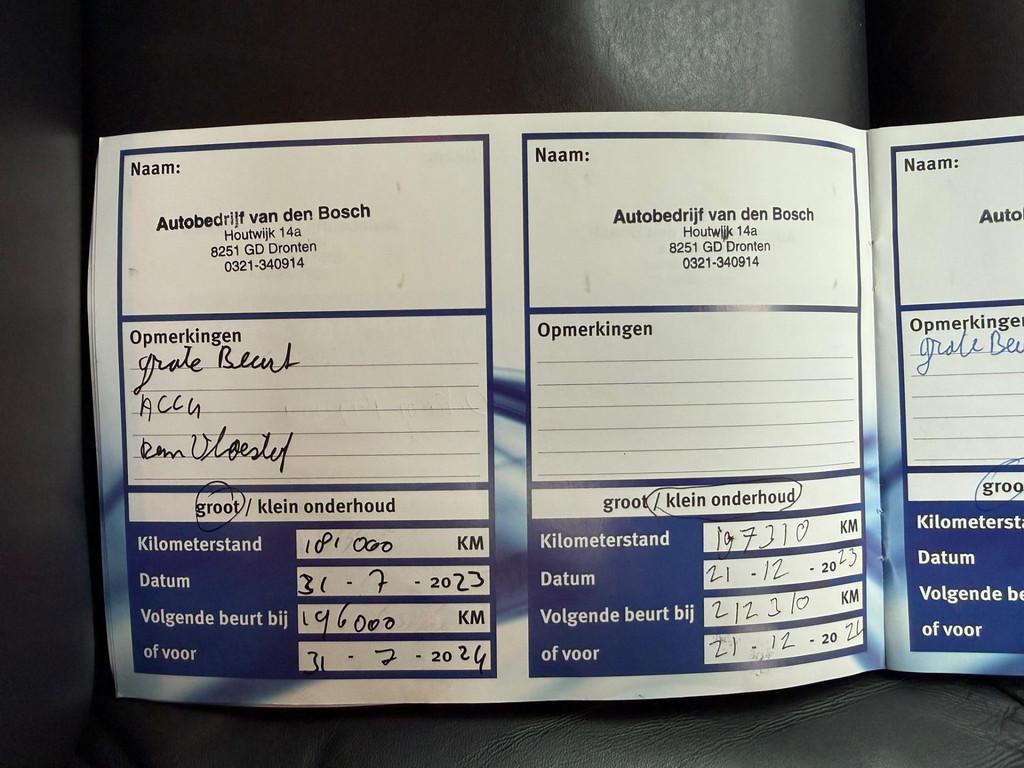 Naam:
Autobedrijf van den Bosch
Houtwijk 14a
8251 GD Dronten
0321-340914
Opmerkingen
grote Beurt
ACCU
Rem Vloeistof
groot / klein onderhoud
Kilometerstand 181000 KM
Datum 31 - 7 - 2023
Volgende beurt bij 196000 KM
of voor 31 - 7 - 2024
Naam:
Autobedrijf van den Bosch
Houtwijk 14a
8251 GD Dronten
0321-340914
Opmerkingen
groot / klein onderhoud
Kilometerstand 197310 KM
Datum 21 - 12 - 2023
Volgende beurt bij 212310 KM
of voor 21 - 12 - 20
Naam:
Autob
Opmerkingen
grote Beu
groo
Kilometersta
Datum
Volgende be
of voor